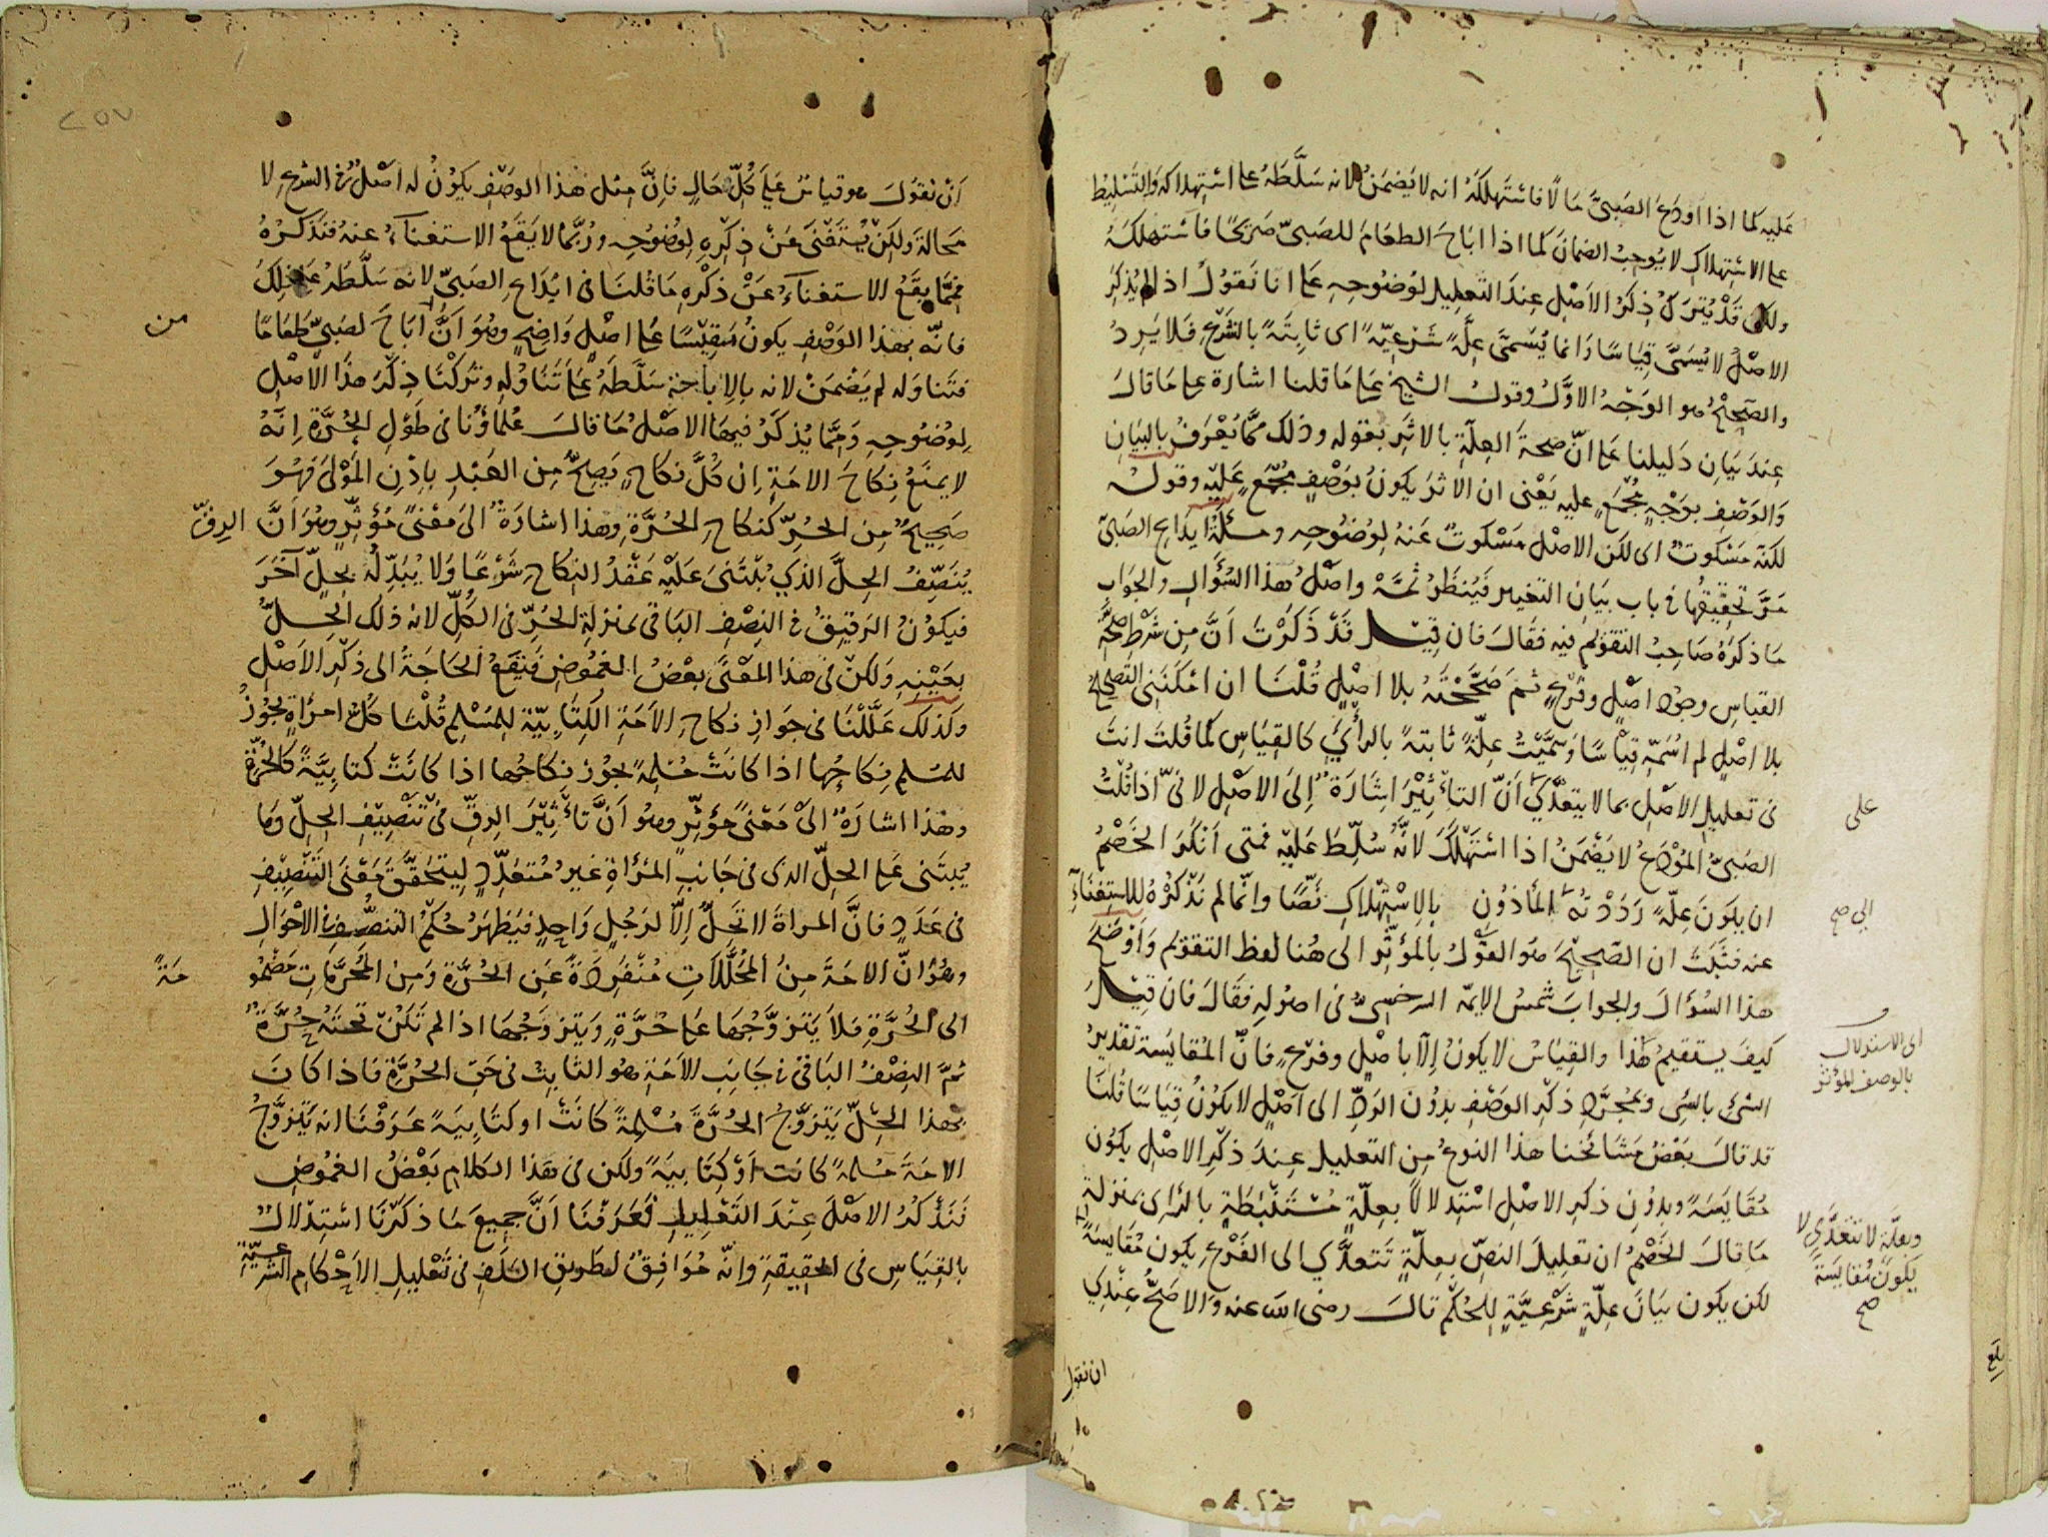 عليه كما اذا اودع الصبىَّ مالًا فاستهلكهُ انه لا يضمنُ لانه سَلَّطهُ على استهلاكه والتَسْلِيطُ
على الاستهلاك لا يُوجبُ الضمانَ كما اذا اباحَ الطعامَ للصبىّ صَريحًا فاستهلكهُ
ولكن قَدْ يُترَكُ ذِكرُ الاصْلِ عِندَ التعليل لوُضوحِهِ على انا نَقولُ اذا لم يُذكَرِ
الاصلُ لا يُسَمَّى قِياسًا وانما يُسَمَّى عِلّةً شَرْعيّةً اى ثابتةً بالشَرْعِ فلا يَرِدُ
والصَحِيحُ هو الوَجْهُ الاوَّلُ وقولُ الشيخِ على ما قلنا اشارة على ما قالَ
عِندَ بيانِ دَليلنا على انّ صحةَ العِلّةِ بالاثَرِ بقوله وذلك ممّا يُعْرَفُ بالبيانِ
والوَصْفِ بوَجْهٍ مُجْمَعٍ عليه يَعْنى ان الاثرَ يكونُ بوَصْفٍ مُجْمَعٍ عَلَيْهِ وقولُه
لكنّه مَسْكوتٌ اى لكن الاصْلَ مَسْكوتٌ عَنهُ لِوُضوحِهِ ومسئلةُ ايداعِ الصَبىّ
مَرَّ تحقيقُها فى باب بيَانِ التغيير فيُنظَرُ ثَمَّهْ واصْلُ هذا السُؤالِ والجوَابِ
ما ذكرهُ صَاحِبُ التقويم فيه فقَالَ فان قيل قَدْ ذَكَرْتَ اَنَّ مِن شَرْطِ صحَّةِ
القياسِ وجودُ اصْلٍ وفَرْعٍ ثم صَحَّحْتَهُ بلا اصْلٍ قُلْنَا ان امْكنَنى التصحيحُ
بلا اصْلٍ لم اُسَمّهِ قِياسًا وسمَّيْتُ عِلّةً ثابتةً بالرأىِ كالقِياسِ كما قُلتَ انتَ
فى تعليلِ الاصْلِ بما لا يتعدَّى على اَنّ التأثِيْرَ اِشَارَةٌ اِلى الاصْلِ لانّى اذا قُلْتُ
الصَبىُّ المُوْدَعُ لا يَضْمَنُ اذا استَهْلَكَ لانَّهُ سُلِّطَ عَليْهِ فمتى اَنْكَرَ الخَصْمُ
ان يكونَ عِلّةً رَدَدْتُه الى المأذُون بالاسْتِهْلاكِ نَصًّا وانّما لم نَذْكُرْهُ للاستغناءِ
عنه فثَبَتَ ان الصَّحِيْحَ هو القَوْلُ بالمؤثِّرِ الى هُنا لفظ التقويم وَاَوْضَحَ
هذا السُؤالَ والجوابَ شَمسُ الايمّه السرخسِىُّ فى اصُولهِ فقَالَ فان قيل
كيفَ يستقيمُ هٰذا والقِياسُ لا يكونُ اِلّا باصْلٍ وفرْعٍ فانَّ المُقايَسَة تقديرُ
الشىءِ بالشىءِ وبمُجرَّدِ ذِكْرِ الوَصْفِ بدُوْن الرَدِّ الى اَصْلٍ لا يكوْنُ قِياسًا قُلنَا
قد قالَ بَعْضُ مَشَائخنا هذا النوعُ مِن التعليل عِندَ ذكْرِ الاصْلِ يكون
مُقَايَسَةً وبدُوْنِ ذكرِ الاصْلِ استِدلالًا بعلّةٍ مُسْتَنْبَطَةٍ بالرّأىِ بمنزلةِ
ما قالَ الخَصْمُ ان تعليلَ النصّ بعِلّةٍ تَتعدَّى الى الفَرْعِ يكون مُقايسَةً
لكن يكون بيَانَ عِلّةٍ شرْعيَّةٍ للحُكْمِ قالَ رضى الله عنه وَالاصَحُّ عِنْدِى
على
الى صح
اى الاستدلال
بالوصف المؤثر
وبعلّةٍ لا تتعدَّى لا
يكونُ مُقايَسَة
صح
بلغ
ان نقول
٢٥٧
اَنْ نقولَ هو قياسٌ عَلى كُلِّ حَالٍ فاِنَّ مِثل هذا الوصْفِ يَكوْنُ له اَصْلٌ فى الشرعِ لا
محالةَ ولكِنْ يُسْتَغْنَى عَنْ ذِكْرِهِ لِوُضُوحِهِ ورُبَّما لا يَقَعُ الاستغناءُ عنهُ فنَذكُرُهُ
فمِمَّا يقَعُ الاستغناءُ عَنْ ذكْرهِ ما قُلنَا فى ايْدَاعِ الصَبىِّ لانه سَلَّطهُ على ذلكَ
فانّه بهذا الوَصْفِ يكونُ مَقِيْسًا على اصْلٍ وَاضِحٍ وهُوَ اَنَّ مَن اَبَاحَ لصَبىٍّ طَعَامًا
فتَناوَله لم يَضْمَنْ لانه بالاِباحَةِ سَلَّطَهُ عَلى تَنَاوُلِهِ وتَركْنَا ذِكْرَ هذَا الاَصْلِ
لِوُضُوحِهِ وَمِمَّا يُذكَرُ فيهَا الاصْلُ مَا قالَ عُلماؤُنا فى طَوْلِ الحُرَّةِ اِنَّهُ
لا يمنَعُ نِكاحَ الامَةِ اِن كُلَّ نكاحٍ يَصِحُّ مِن العَبْدِ بِاِذْنِ المَوْلىَ فَهُوَ
صَحِيحٌ مِن الحُرِّ كنكاحِ الحُرَّةِ وهذا اشارَةٌ الىَ مَعْنًى مُؤَثِّرٍ وهُوَ اَنَّ الرِقّ
يُنَصِّفُ الحِلَّ الذى يُبْتَنىَ عَلَيْهِ عَقْدُ النِكاحِ شَرْعًا وَلا يُبَدِّلُهُ بِحِلٍّ آخَرَ
فيكوْنُ الرَقيقُ فى النِصْفِ البَاقى بمنزلةِ الحُرِّ فى الكُلِّ لانه ذلك الحِلُّ
بعَيْنِهِ وَلكنْ فى هذا المَعْنَى بعْضُ الغمُوضِ فتقعُ الحَاجَةُ الى ذِكْرِ الاَصْلِ
وَكذلكَ عَلَّلْنَا فى جَوازِ نِكاحِ الاَمَةِ الكِتابِيّةِ للمُسْلِمِ قُلْنَا كلُّ امرَاَةٍ يجُوْزُ
للمسْلمِ نِكاحُها اذا كانَتْ مُسْلِمَةً يجُوز نِكاحُها اذا كانَتْ كتابيَّةً كالحُرَّةِ
وهٰذا اشارَةٌ الىَ مَعْنًى مُؤثِّرٍ وهُو اَنَّ تأثِيْرَ الرِقِّ فى تَنْصِيْفِ الحِلِّ وَمَا
يُبتَنى على الحِلِّ الذى فى جَانِبِ المَرْاَةِ غيرُ مُتعَدِّدٍ لِيتحَقَّقَ مَعْنَى التَنْصِيْفِ
فى عَدَدٍ فانَّ المراةَ لا تَحِلُّ اِلّا لرَجُلٍ وَاحِدٍ فيَظهَرُ حُكْمُ التنصُّفِ فى الاَحْوَالِ
وهُوَ انّ الامَةَ مِنَ المُحَلَّلاتِ مُنْفَرِدَةً عَنِ الحُرَّةِ وَمِنَ المُحَرَّمَاتِ مَضْمُومَةً
الى الحُرَّةِ فلاَ يَتزوَّجُهَا عَلى حُرَّةٍ وَيَتزوَّجُهَا اذا لم تكُنْ تحتَهُ حُرَّةٌ
ثمَّ النِصْفُ البَاقى فى جَانِبِ الاَمَةِ هُو الثابِتُ فى حَقِّ الحُرَّةِ فاذا كانَ
بهذا الحِلِّ يَتزوَّجُ الحُرَّةَ مُسْلِمةً كانَتْ او كتَابيَةً عَرَفْنَا انه يَتزوَّجُ
الامَةَ مُسْلمةً كانت اَوْ كِتَابيةً ولكن فى هذا الكلامِ بَعْضُ الغمُوضِ
فنَذْكُرُ الاصْلَ عِنْدَ التَعْليلِ فعَرَفْنَا اَنَّ جميعَ مَا ذكَرْنَا اسْتِدْلالٌ
بالقِيَاسِ فى الحقيقةِ وانّه مُوَافِقٌ لطَريقِ السَلَفِ فى تَعْلِيلِ الاَحْكامِ الشَرْعيّةِ